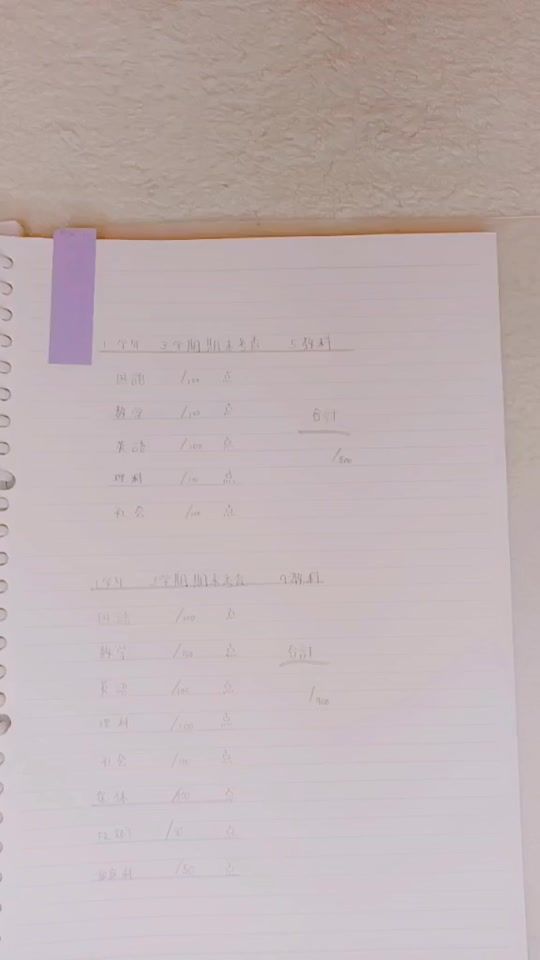 1学年 3学期期末考査 5教科
国語 /100 点
数学 /100 点
合計
英語 /100 点
/500
理科 /100 点
社会 /100 点
1学年 3学期期末考査 9教科
国語 /100 点
数学 /100 点
合計
英語 /100 点
/900
理科 /100 点
社会 /100 点
保体 /100 点
/50 点
/50 点